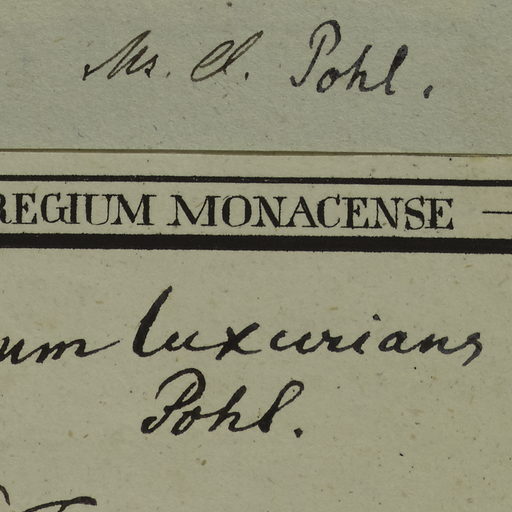 Ms. Cl. Pohl.
REGIUM MONACENSE
um luxurians
Pohl.